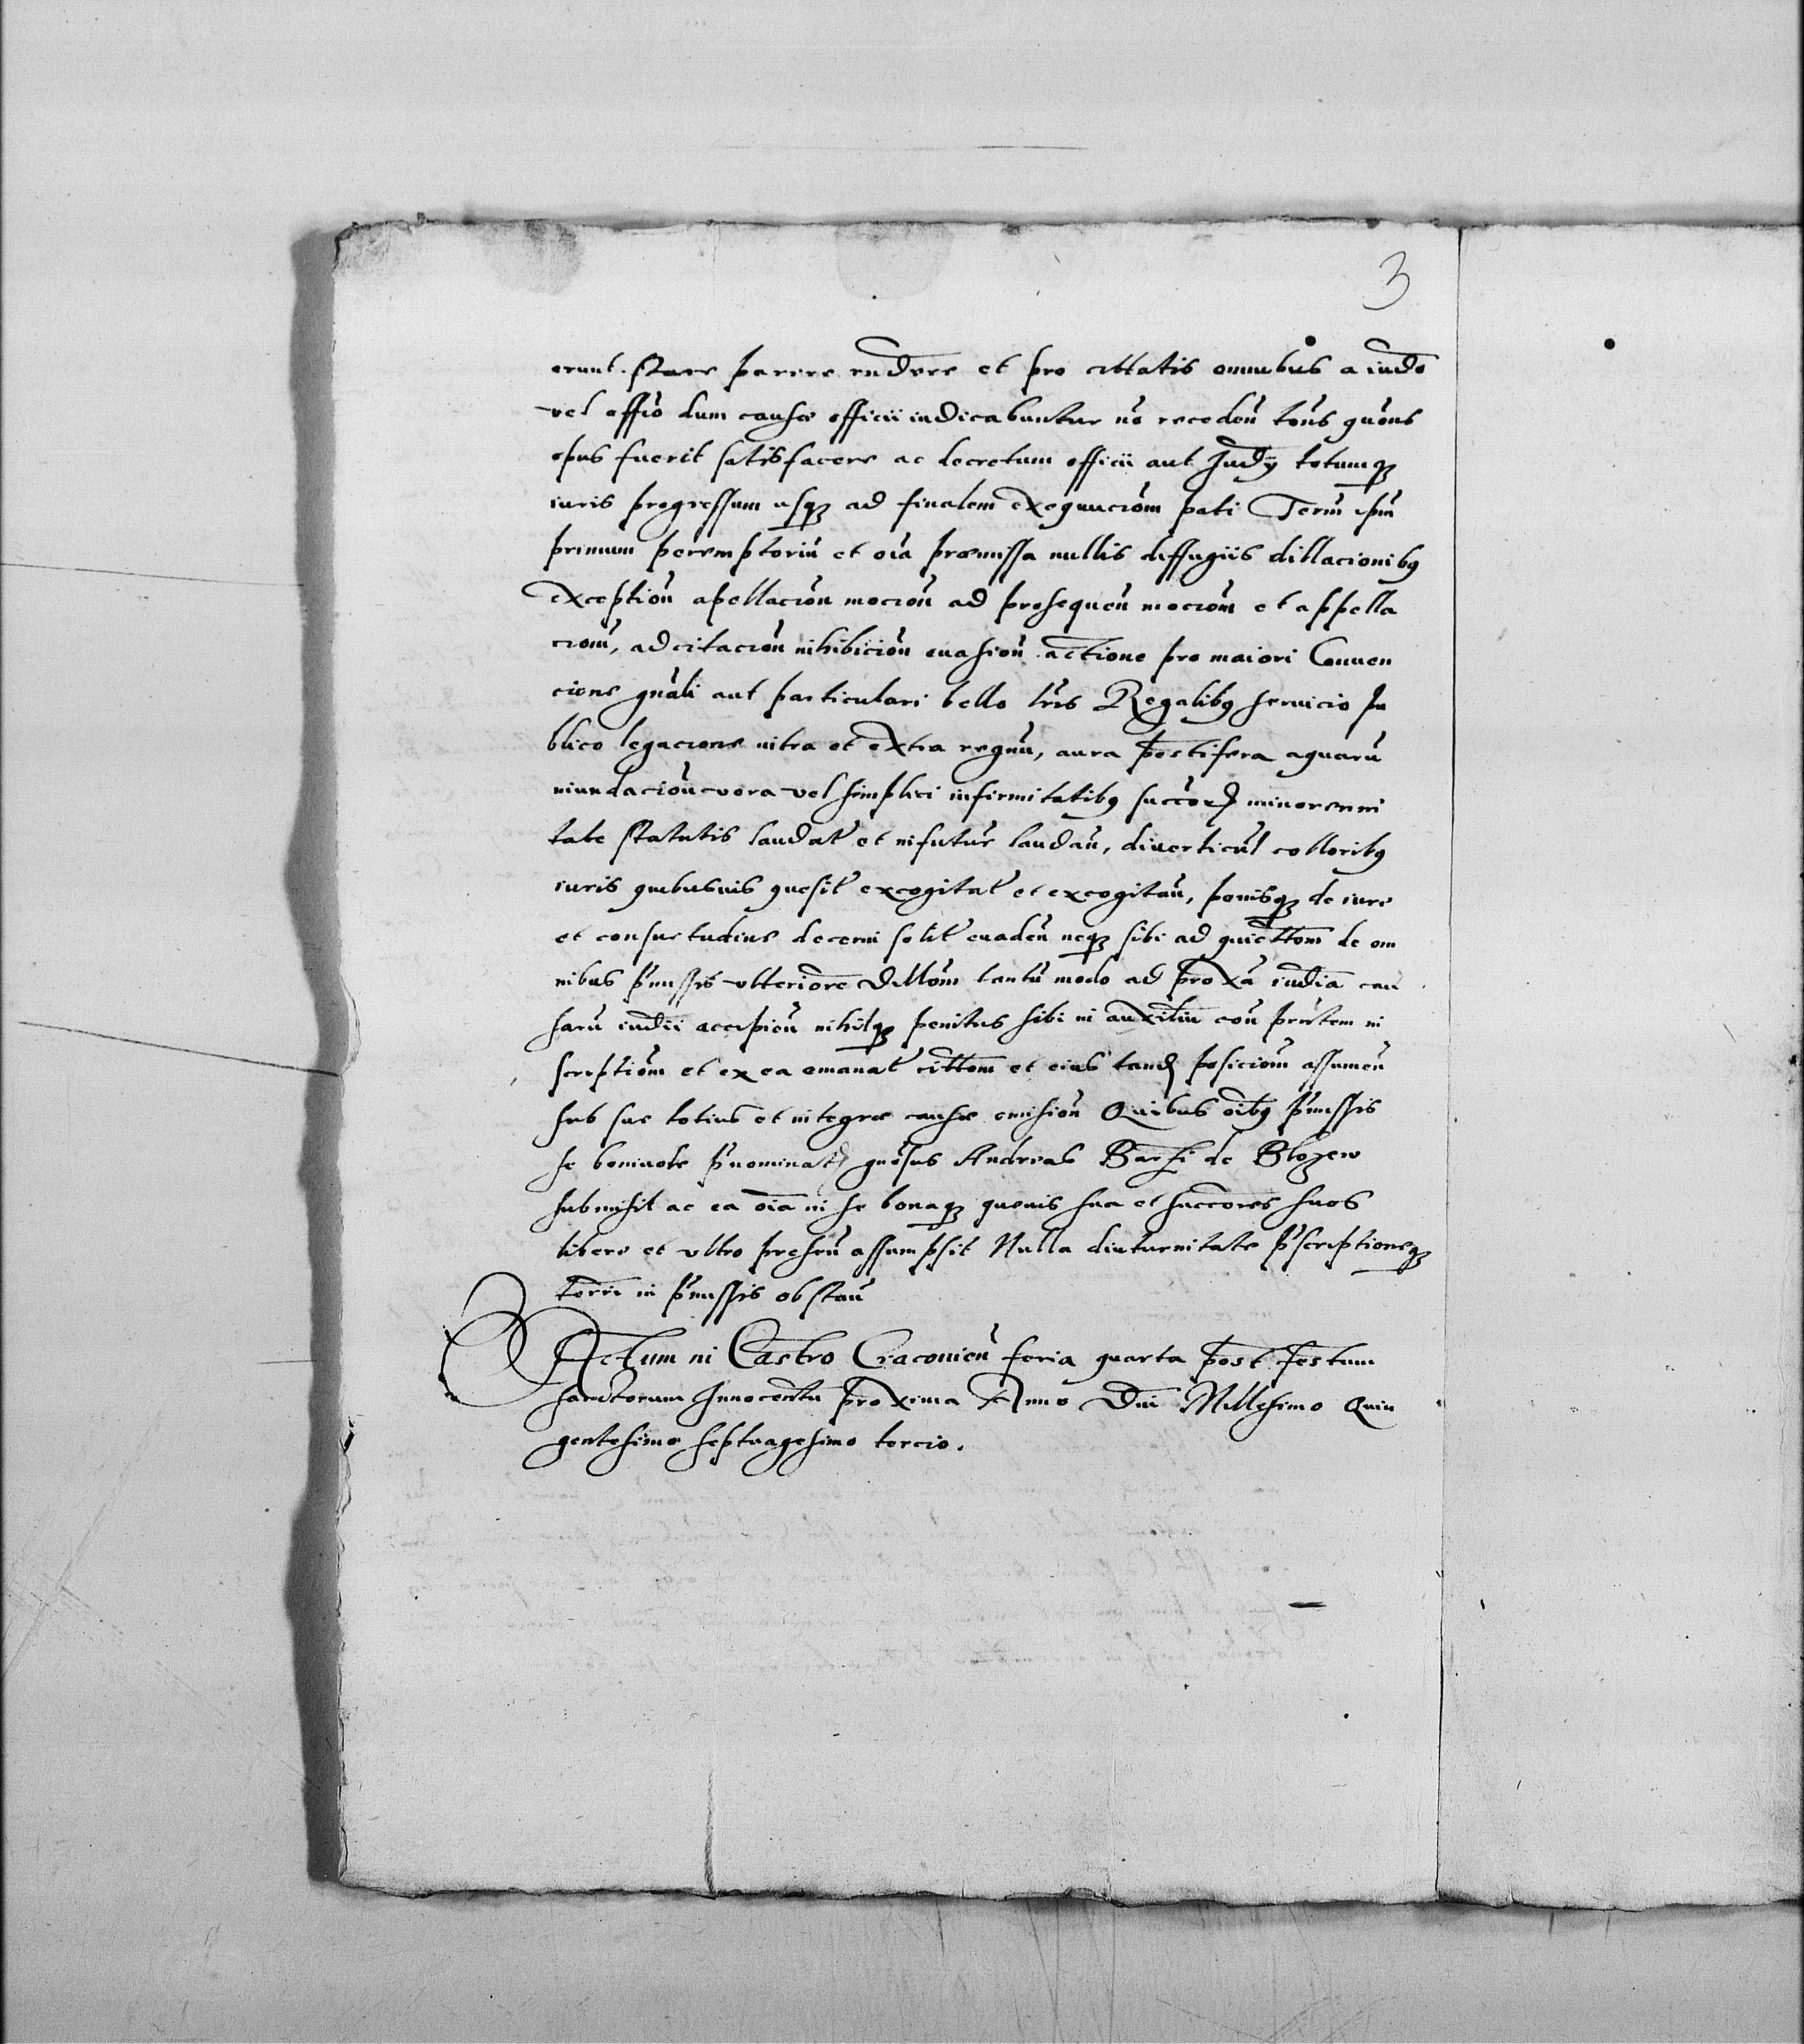 3
erunt. stare parere rñdere et pro cittatis omnibus a iudo
vel offio dum causæ officii iudicabuntur no receden tõns quõns
opus fuerit satisfacere ac decretum officii aut Judÿ totumq3
iuris progressum usq3 ad finalem exequucioñ pati Termĩ ipm
primum peremptoriũ et oĩa præmissa nullis diffugiis dillacionibq
exceptioñ apellacioñ mocioñ ad prosequeñ mocioñ et appella
cioñ, adcitacioñ inhibicioñ euasioñ actione pro maiori Conuen
cione gñali aut particulari bello lr̃is Regalibq seruicio pu
blico legacione intra et extra regnũ, aura pestifera aquarũ
inundacioñ vera vel simplici infirmitatibq succoꝝ minorenni
tate statutis laudat̃ et in futur̃ laudañ, diuerticul̃ colloribq
iuris quibusuis quesit̃ excogitat̃ et excogitañ, penisq3 de iure
et consuetudine decerni solit̃ euadeñ neq3 sibi ad quiettoñ de om
nibus p̃missis vlteriorẽ dillom̃ tantũ modo ad proxã iudĩa cau
sarũ iudĩi accipieñ nihilq3 penitus sibi in auxiliũ coñ pñtem in
scriptioñ et ex ea emanat̃ cittom̃ et eius tandẽ posicioñ assumeñ
sub sue totius et integræ causæ emisioñ Quibus oĩbq p̃missis
se beniuole p̃nominat9 gnõsus Andreas Barsi de Blozew
submisit ac ea oĩa in se bonaq3 queuis sua et succores suos
libere et vltro presenũ assumpsit Nulla diuturnitate p̃scriptioneq3
terrĩ in p̃missis obstañ
Actum in Castro Cracouieñ feria quarta post festum
sanctorum Innocentũ proxima Anno Dñi Millesimo Quin
gentesimo septuagesimo tercio.